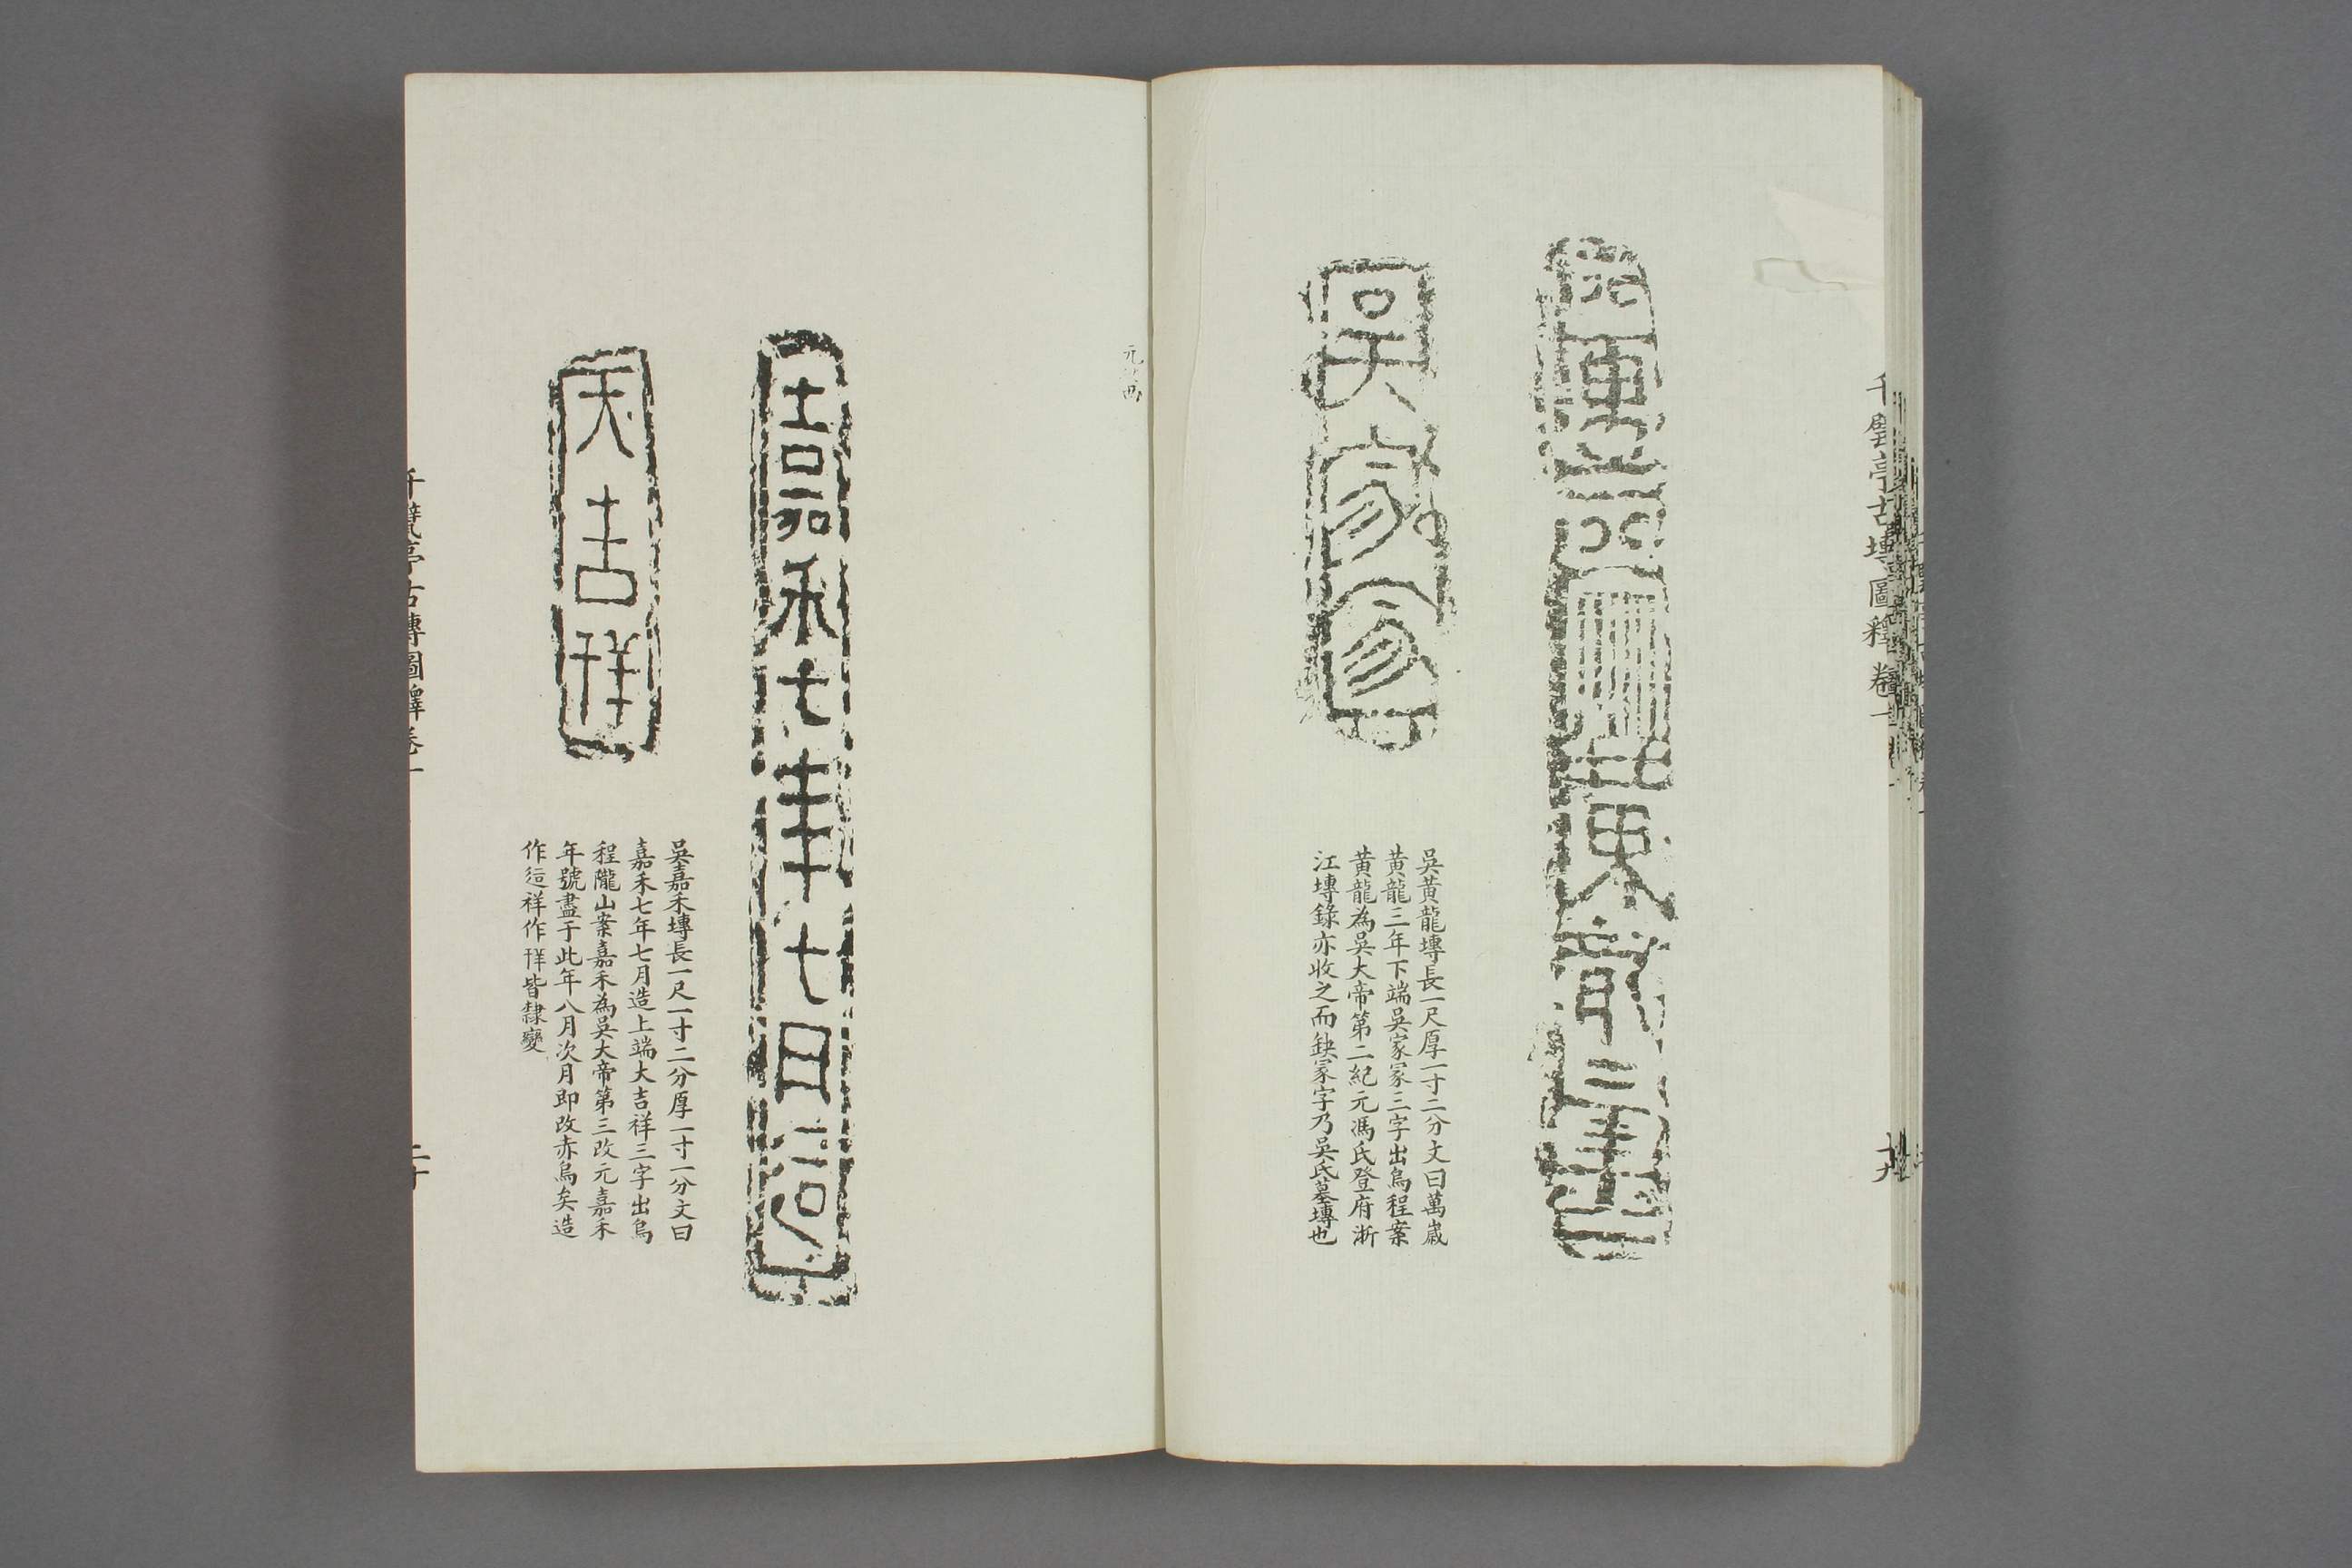 千甓亭古塼圖釋卷一
十九
吳家冢
吳黃龍塼長一尺厚一寸二分文曰萬嵗
黃龍三年下端吳家冢三字出烏程案
黃龍為吳大帝第二紀元馮氏登府浙
江塼錄亦收之而缺冢字乃吳氏墓塼也
嘉禾七年七月造
大吉祥
吳嘉禾塼長一尺一寸二分厚一寸一分文曰
嘉禾七年七月造上端大吉祥三字出烏
程隴山案嘉禾為吳大帝第三改元嘉禾
年號盡于此年八月次月即改赤烏矣造
作𨒪祥作𥙊皆隸變
千甓亭古塼圖釋卷一
二十